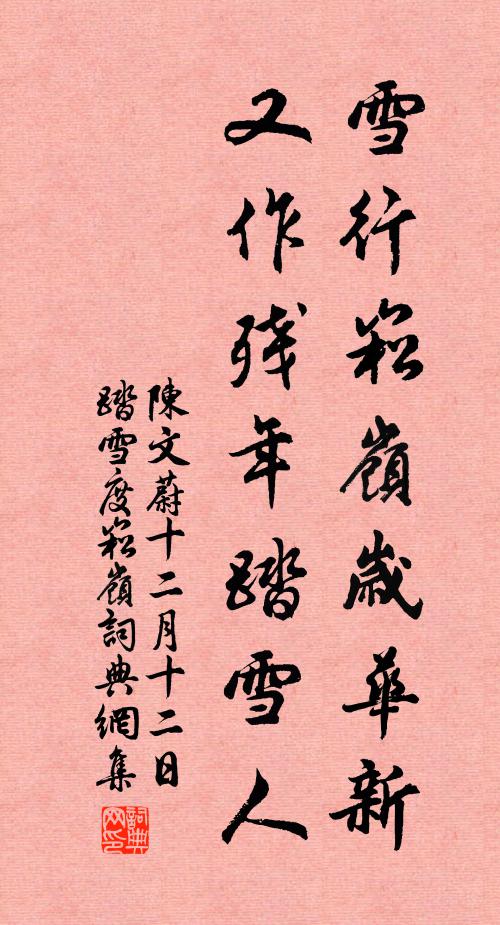 雪行崧嶺歲華新
又作残年踏雪人
陳文蔚十二月十二日
踏雪度崧嶺詞典網集
詞典
网印